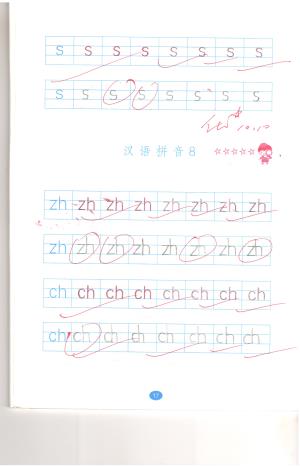 s s s s s s s s
s s s s s s s s
10.10
汉语拼音8
zh zh zh zh zh zh zh zh
zh zh zh zh zh zh zh zh
ch ch ch ch ch ch ch ch
ch ch ch ch ch ch ch ch
17